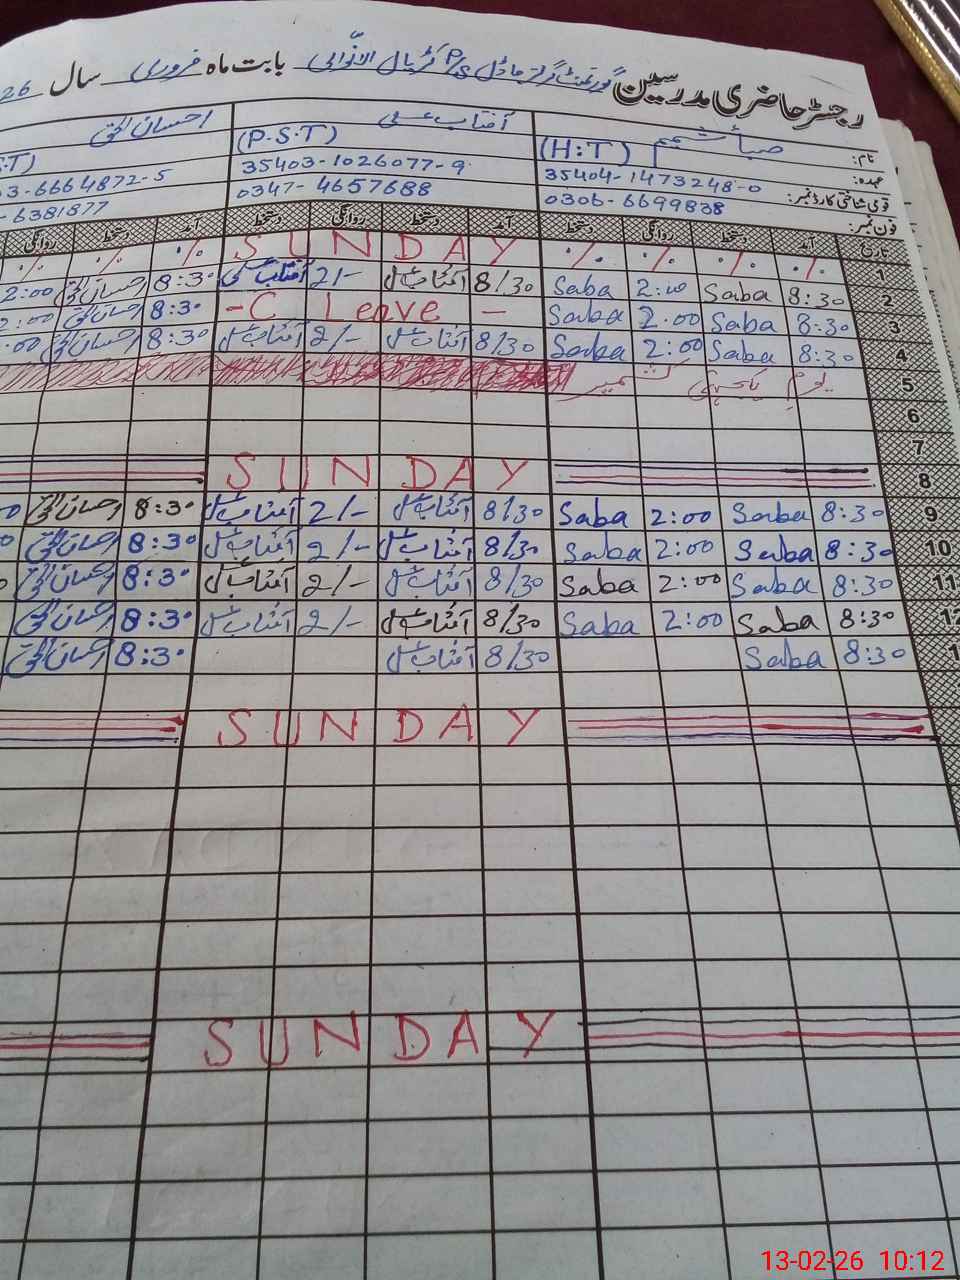 رجسٹر حاضری مدرسین گورنمنٹ گرلز ماڈل پ/س کڑیال الانوالی بابت ماہ فروری سال 26
نام: صبا شمیم آفتاب علی احسان الحق
عہدہ: (H:T) (P.S.T) S.T)
قومی شناختی کارڈ نمبر: 35404-1473248-0 35403-1026077-9 03-6664872-5
فون نمبر: 0306-6699838 0347-4657688 -6381877
تاریخ آمد دستخط روانگی دستخط آمد دستخط روانگی دستخط آمد دستخط روانگی
1 ٪ ٪ ٪ ٪ SUNDAY ٪ ٪ ٪
2 8:30 Saba 2:00 Saba 8/30 آفتاب علی 2/- آفتاب علی 8:30 احسان الحق 2:00
3 8:30 Saba 2.00 Saba - C Leave - 8:30 احسان الحق 2:00
4 8:30 Saba 2:00 Saba 8/30 آفتاب علی 2/- آفتاب علی 8:30 احسان الحق :00
5 یوم یکجہتی کشمیر
6
7
8 SUNDAY
9 8:30 Saba 2:00 Saba 8/30 آفتاب علی 2/- آفتاب علی 8:30 احسان الحق 0
10 8:30 Saba 2:00 Saba 8/30 آفتاب علی 2/- آفتاب علی 8:30 احسان الحق 0
11 8:30 Saba 2:00 Saba 8/30 آفتاب علی 2/- آفتاب علی 8:30 احسان الحق
12 8:30 Saba 2:00 Saba 8/30 آفتاب علی 2/- آفتاب علی 8:30 احسان الحق
1 8:30 Saba 8/30 آفتاب علی 8:30 احسان الحق
SUNDAY
SUNDAY
13-02-26 10:12